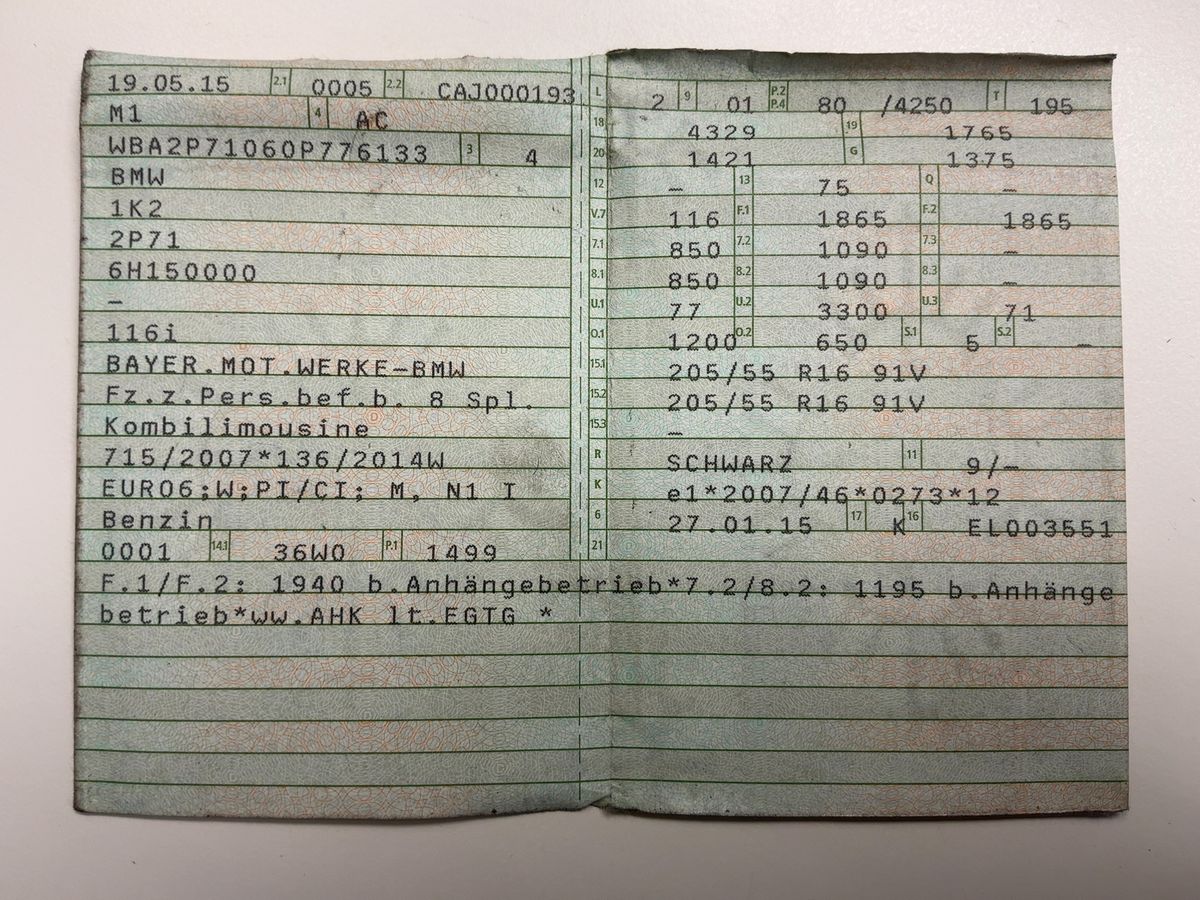 19.05.15 2.1 0005 2.2 CAJ000193
M1 4 AC
WBA2P71060P776133 3 4
BMW
1K2
2P71
6H150000
–
116i
BAYER.MOT.WERKE-BMW
Fz.z.Pers.bef.b. 8 Spl.
Kombilimousine
715/2007*136/2014W
EURO6;W;PI/CI; M, N1 I
Benzin
0001 14.1 36W0 P.1 1499
L 2 9 01 P.2 P.4 80 /4250 T 195
18 4329 19 1765
20 1421 G 1375
12 – 13 75 Q –
V.7 116 F.1 1865 F.2 1865
7.1 850 7.2 1090 7.3 –
8.1 850 8.2 1090 8.3 –
U.1 77 U.2 3300 U.3 71
O.1 1200 O.2 650 S.1 5 S.2 –
15.1 205/55 R16 91V
15.2 205/55 R16 91V
15.3 –
R SCHWARZ 11 9/–
K e1*2007/46*0273*12
6 27.01.15 17 K 16 EL003551
21
F.1/F.2: 1940 b.Anhängebetrieb*7.2/8.2: 1195 b.Anhänge
betrieb*ww.AHK lt.EGTG *